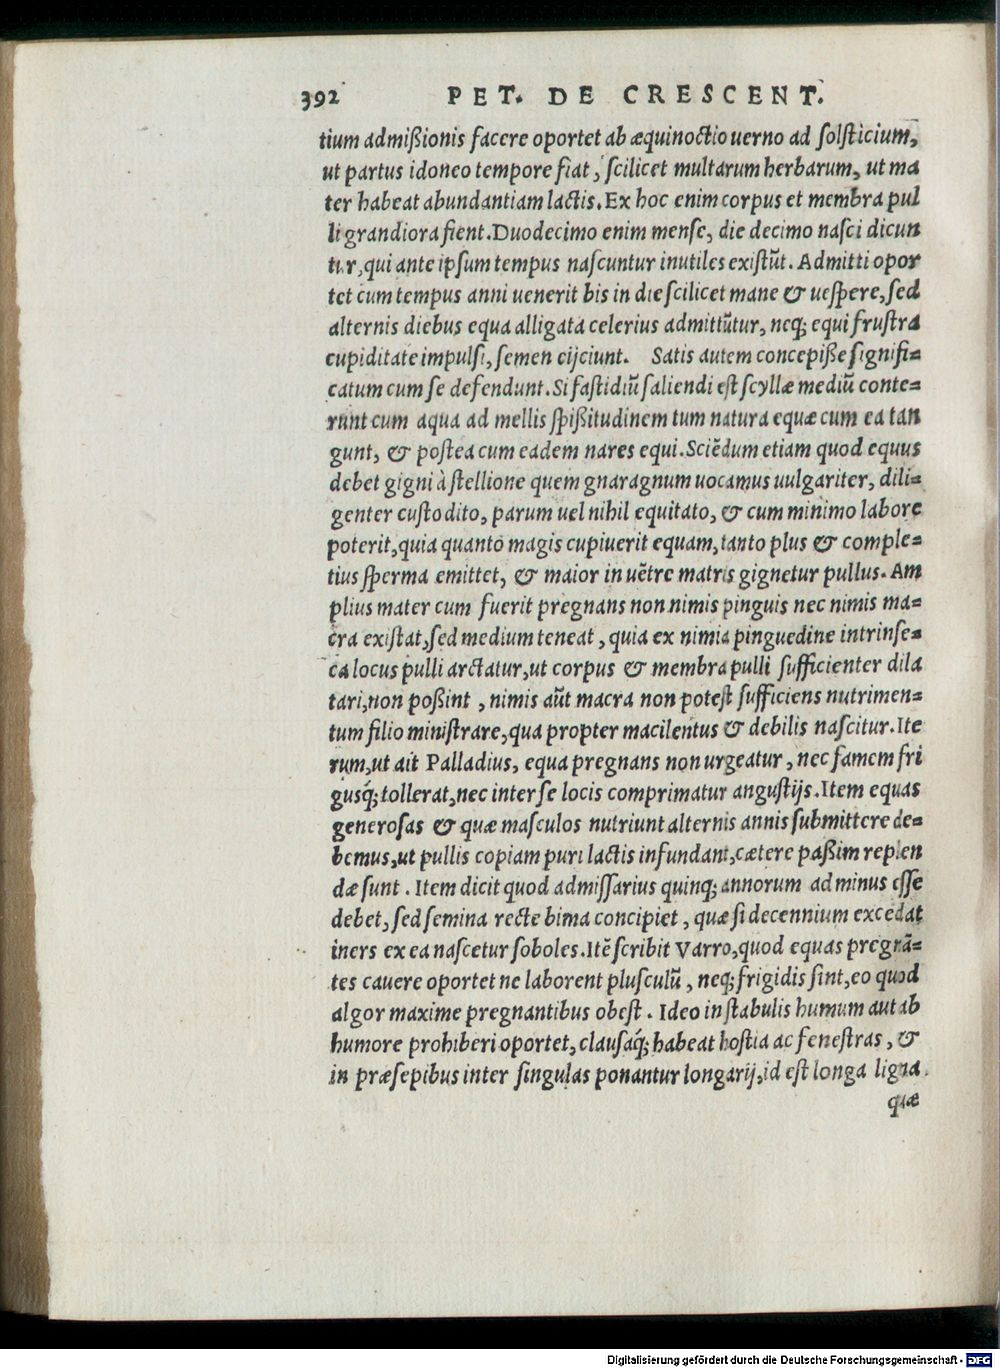 392 PET. DE CRESCENT.
tium admißionis facere oportet ab æquinoctio uerno ad ſolſticium,
ut partus idoneo tempore fiat, ſcilicet multarum herbarum, ut ma
ter habeat abundantiam lactis. Ex hoc enim corpus et membra pul
li grandiora fient. Duodecimo enim menſe, die decimo naſci dicun
tur, qui ante ipſum tempus naſcuntur inutiles exiſtūt. Admitti opor
tet cum tempus anni uenerit bis in die ſcilicet mane & ueſpere, ſed
alternis diebus equa alligata celerius admittūtur, neq; equi fruſtra
cupiditate impulſi, ſemen eijciunt. Satis autem concepiße ſignifi=
catum cum ſe defendunt. Si faſtidiū ſaliendi eſt ſcyllæ mediū conte=
runt cum aqua ad mellis ſpißitudinem tum natura equæ cum ea tan
gunt, & poſtea cum eadem nares equi. Sciēdum etiam quod equus
debet gigni à ſtellione quem gnaragnum uocamus uulgariter, dili=
genter cuſtodito, parum uel nihil equitato, & cum minimo labore
poterit, quia quanto magis cupiuerit equam, tanto plus & comple=
tius ſperma emittet, & maior in uētre matris gignetur pullus. Am
plius mater cum fuerit pregnans non nimis pinguis nec nimis ma=
cra exiſtat, ſed medium teneat, quia ex nimia pinguedine intrinſe=
ca locus pulli arctatur, ut corpus & membra pulli ſufficienter dila
tari, non poßint, nimis aūt macra non poteſt ſufficiens nutrimen=
tum filio miniſtrare, qua propter macilentus & debilis naſcitur. Ite
rum, ut ait Palladius, equa pregnans non urgeatur, nec famem fri
guſq́; tollerat, nec inter ſe locis comprimatur anguſtijs. Item equas
generoſas & quæ maſculos nutriunt alternis annis ſubmittere de=
bemus, ut pullis copiam puri lactis infundant, cætere paßim replen
dæ ſunt. Item dicit quod admiſſarius quinq; annorum ad minus eſſe
debet, ſed ſemina recte bima concipiet, quæ ſi decennium excedat
iners ex ea naſcetur ſoboles. Itē ſcribit Varro, quod equas pregnā=
tes cauere oportet ne laborent pluſculū, neq; frigidis ſint, eo quod
algor maxime pregnantibus obeſt. Ideo in ſtabulis humum aut ab
humore prohiberi oportet, clauſaq́; habeat hoſtia ac feneſtras, &
in præſepibus inter ſingulas ponantur longarij, id eſt longa ligna.
quæ
Digitalisierung gefördert durch die Deutsche Forschungsgemeinschaft - DFG